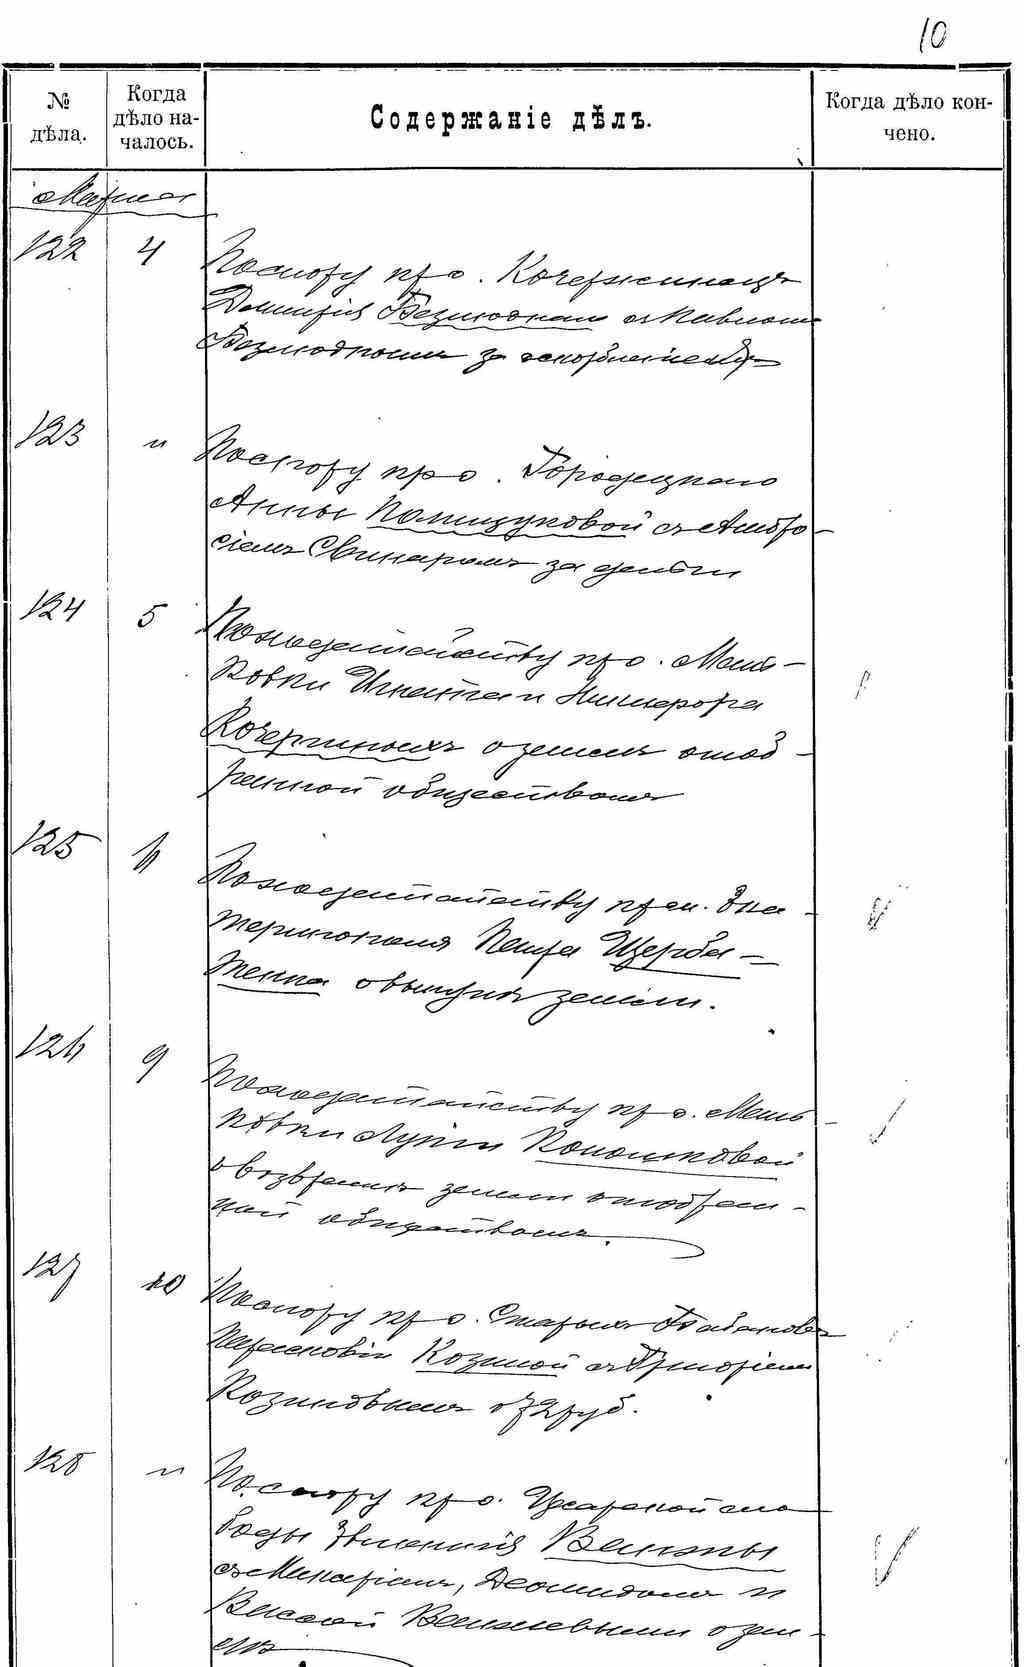 10
№ дѣла.
Когда дѣло на-
чалось.
Содержаніе дѣлъ.
Когда дѣло кон-
чено.
Марта
122 4 По спору кр. с. Кочержинецъ
Дмитрія Безлюднаго съ Павломъ
Безлюднымъ за оскорбленіе
123 " По спору кр. с. Городецкаго
Анны Полищуковой съ Амвро-
сіемъ Свинаремъ за деньги
124 5 По ходатайству кр. с. Мань-
ковки Игната и Никифора
Кочергиныхъ о землѣ отоб-
ранной обществомъ
125 6 По ходатайству кр. м. Ека-
теринополя Петра Щерба-
тенка о выкупѣ земли.
126 9 По ходатайству кр. с. Мань-
ковки Лукіи Коношковой
о возвратѣ земли отобран-
ной обществомъ.
127 10 По спору кр. с. Старыхъ Бабановъ
Параскевіи Козиной съ Григоріемъ
Козиновымъ о 72 руб.
128 " По спору кр. с. Цкарской сло
боды Венжы
съ Макаріемъ, Деомидомъ и
Вассой Венжевыми о зем-
лѣ